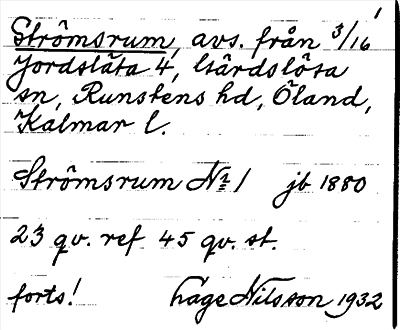 Strömsrum, avs. från 3/16
Jordsläta 4, Gärdslösa
sn, Runstens hd, Öland,
Kalmar l.
Strömsrum No 1 jb 1880
23 qv. ref 45 qv. st.
forts! Hage Nilsson 1932